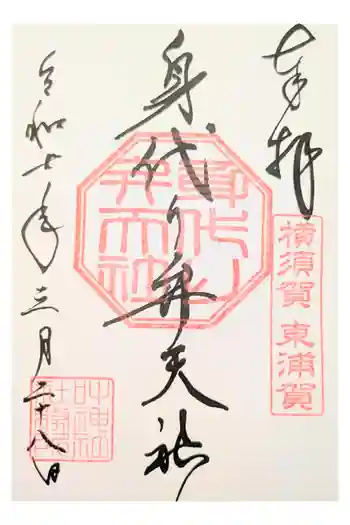 奉拝
横須賀 東浦賀
身代り弁天社
身代り弁天社
令和七年三月二十八日
叶神社